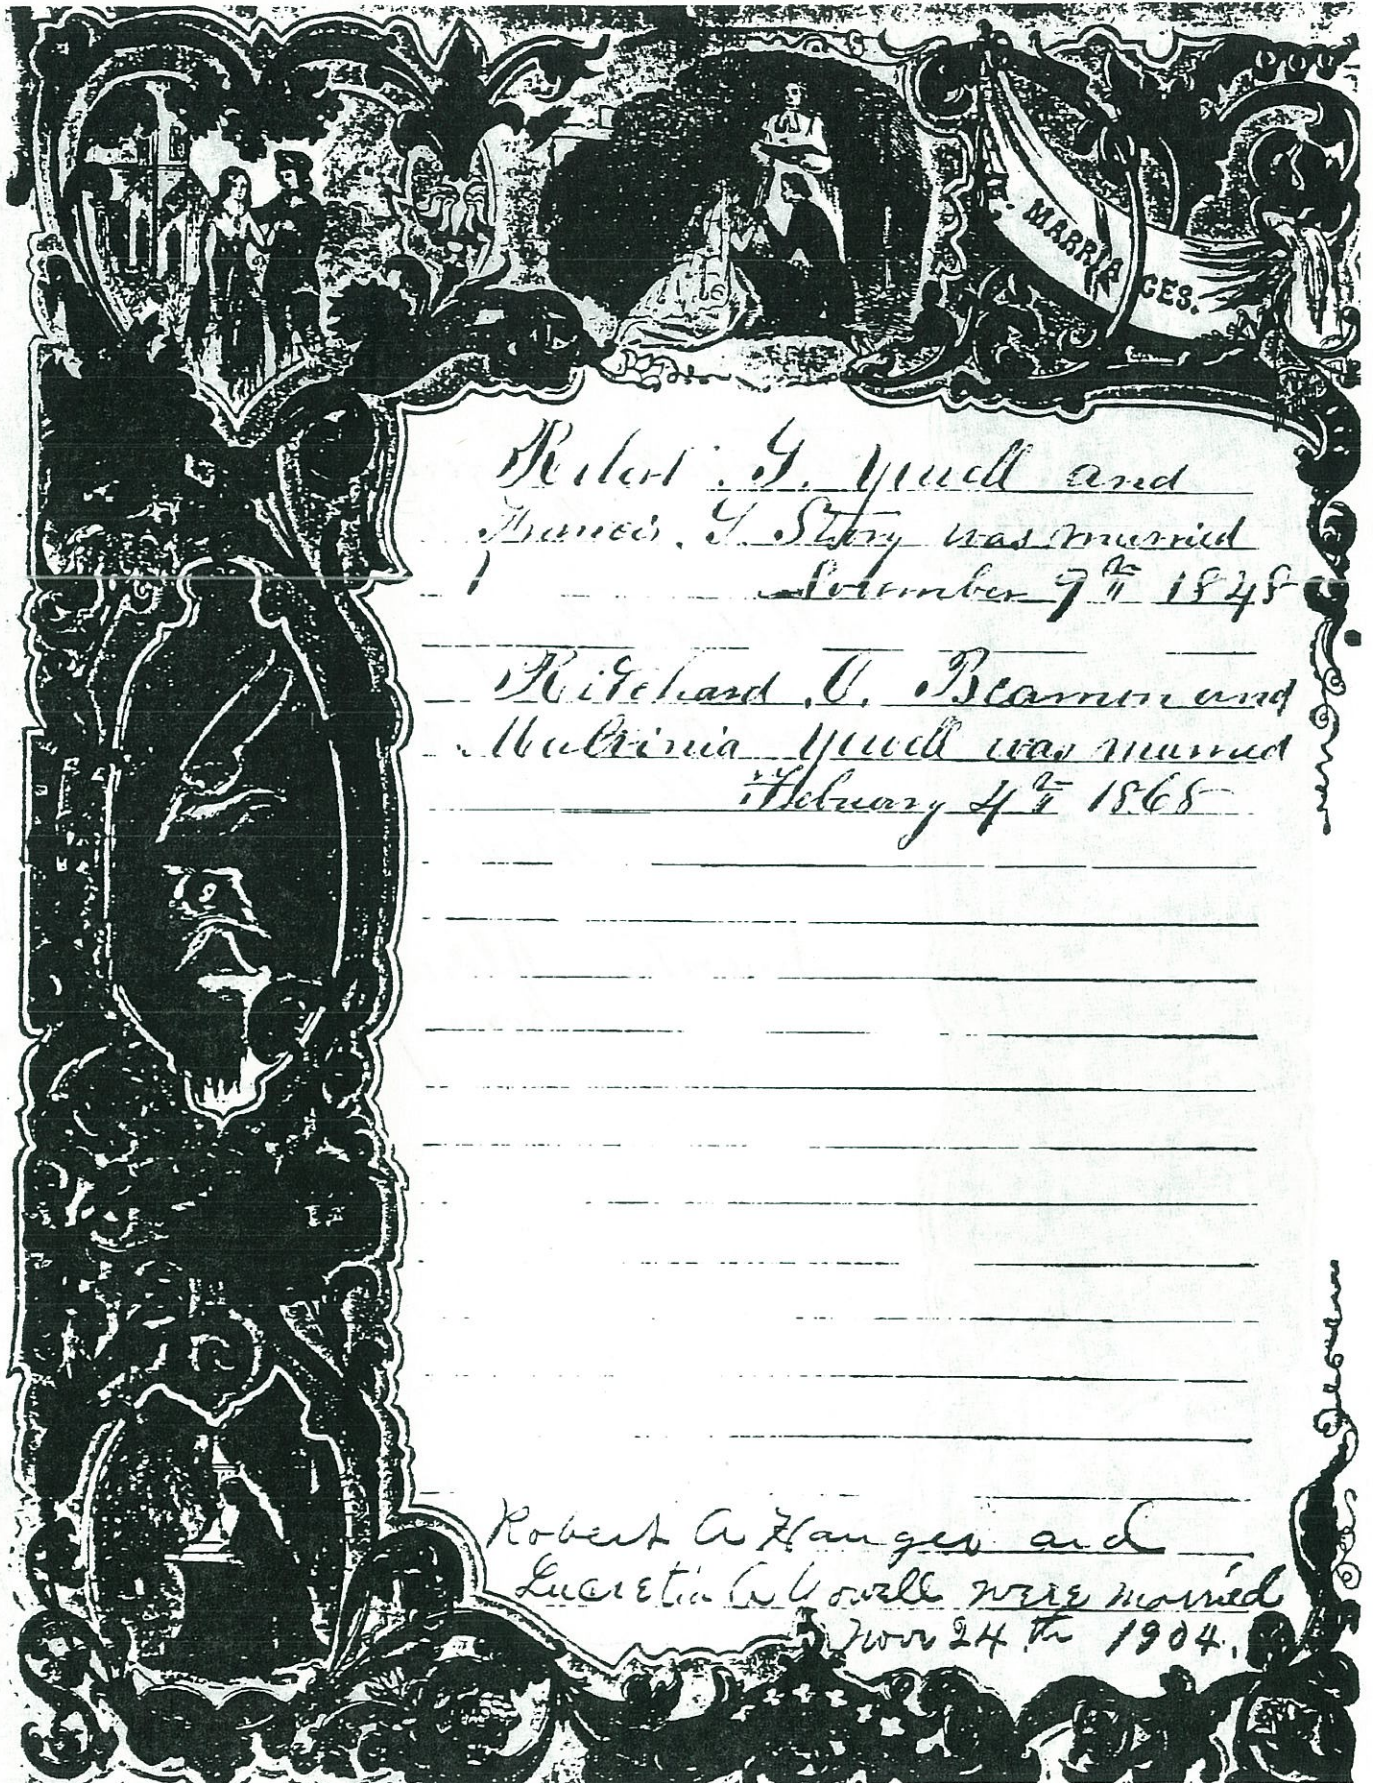 MARRIAGES.
Robert . G. Yowell and
Francis. G. Story was married
November 9th 1848
Ritchard . O. Beamon and
Malvinia Yowell was married
February 4th 1868
Robert A Hanger and
Lucretia A Yowell were married
Nov 24th 1904.